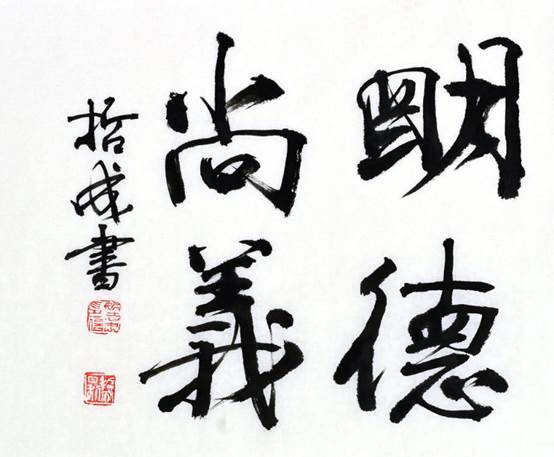 明德
尚義
哲成書